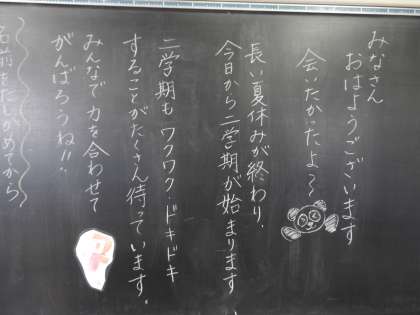 みなさん
おはようございます
会いたかったよ〜
長い夏休みが終わり、
今日から二学期が始まります。
二学期もワクワク・ドキドキ
することがたくさん待っています。
みんなで力を合わせて
がんばろうね!!
名前をたしかめてから